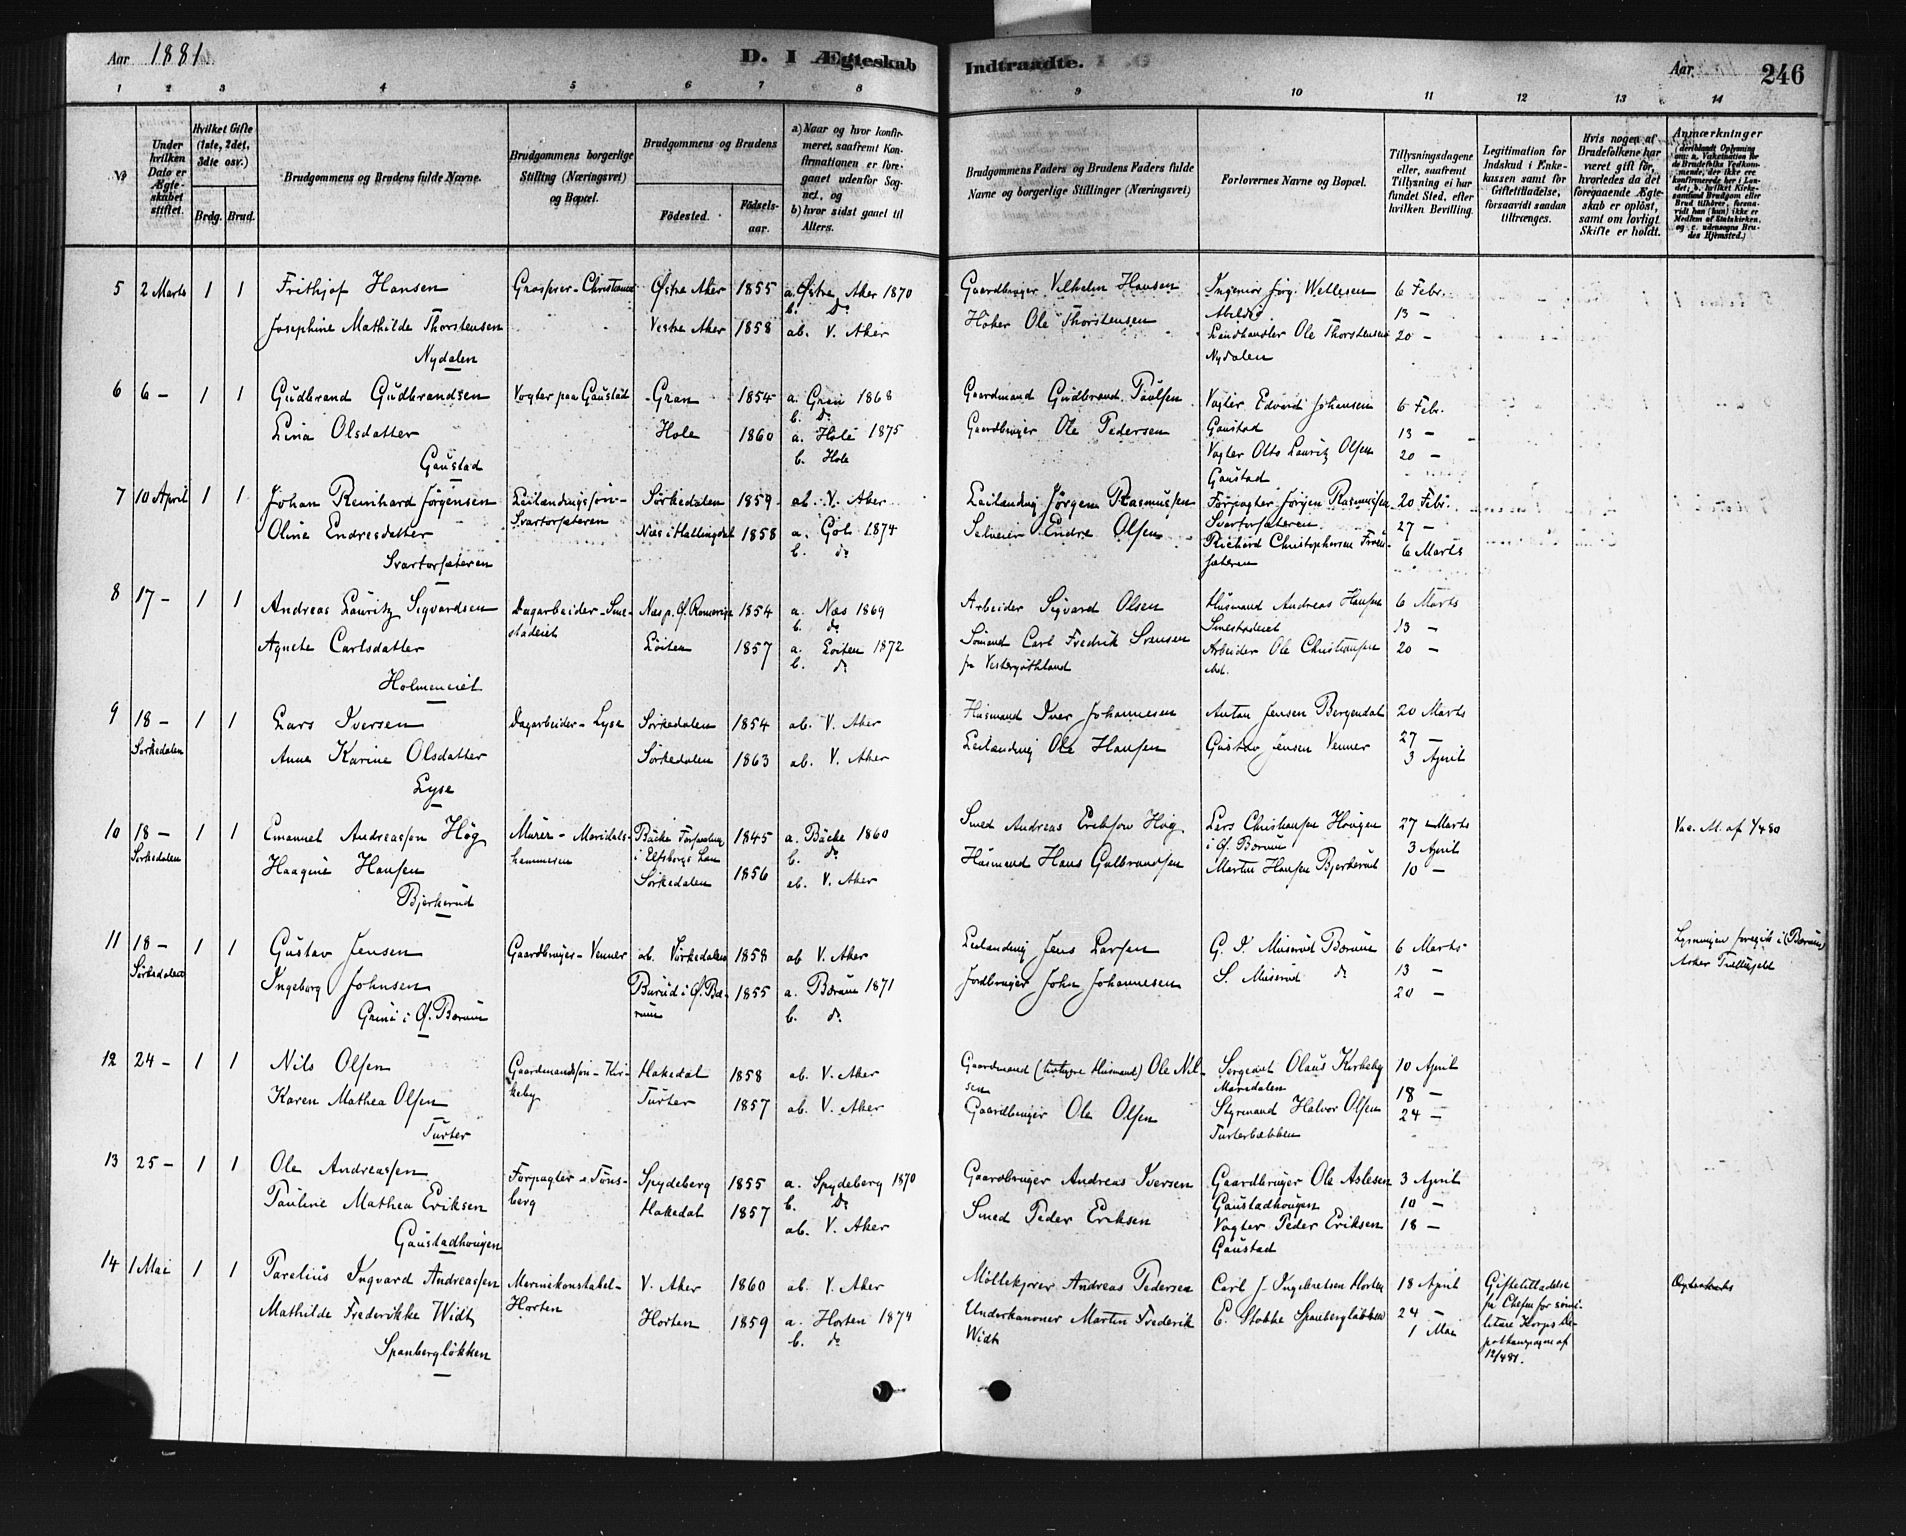 Aar 1881.
D. I Ægteskab Indtraadte.
Aar
246
1 2 3 4 5 6 7 8 9 10 11 12 13 14
No
Under hvilken Dato er Ægteskabet stiftet.
Hvilket Gifte (1ste, 2det, 3dte osv.)
Brdg. Brud.
Brudgommens og Brudens fulde Navne.
Brudgommens borgerlige Stilling (Næringsvei) og Bopæl.
Brudgommens og Brudens
Fødested.
Fødselsaar.
a) Naar og hvor konfirmeret, saafremt Konfirmationen er foregaaet udenfor Sognet, og
b) hvor sidst gaaet til Alters.
Brudgommens Faders og Brudens Faders fulde Navne og borgerlige Stillinger (Næringsvei)
Forlovernes Navne og Bopæl.
Tillysningsdagene eller, saafremt Tillysning ei har fundet Sted, efter hvilken Bevilling.
Legitimation for Indskud i Enkekassen samt for Giftetilladelse, forsaavidt saadan tiltrænges.
Hvis nogen af Brudefolkene har været gift før, hvorledes da det foregaaende Ægteskab er opløst, samt om lovligt Skifte er holdt.
Anmærkninger (deriblandt Oplysning om: a. Vakcination for de Brudefolks Vedkommende, der ikke ere konfirmerede her i Landet; b. hvilket Kirkesamfund Brudgom eller Brud tilhører, forsaavidt han (hun) ikke er Medlem af Statskirken, og c. udensogns Brudes Hjemsted.)
5 2 Marts 1 1 Frithjof Hansen Grosserer - Christiania Østre Aker 1855 a. Østre Aker 1870 Gaardbruger Vilhelm Hansen Ingeniør Jørg. Wellesen 6 Febr.
b. do Abildsø 13 —
Josephine Mathilde Thorstensen Vestre Aker 1858 ab. V. Aker Høker Ole Thorstensen Landhandler Ole Thorstensen 20 —
Nydalen Nydalen
6 6 — 1 1 Gudbrand Gudbrandsen Vogter paa Gaustad Gran 1854 a. Gran 1868 Gaardmand Gudbrand Paulsen Vogter Edvard Johansen 6 Febr.
b. do Gaustad 13 —
Lina Olsdatter Hole 1860 a. Hole 1875 Gaardbruger Ole Pedersen Vogter Otto Lauritz Olsen 20 —
Gaustad b. Hole Gaustad
7 10 April 1 1 Johan Reinhard Jørgensen Leilændingssøn - Sørkedalen 1859 ab. V. Aker Leilænding Jørgen Rasmussen Forpagter Jørgen Rasmussen 20 Febr.
Svartorsæteren Svartorsæteren 27 —
Oline Endresdatter Næs i Hallingdal 1858 a. Gol 1874 Selveier Endre Olsen Richard Christophersen 6 Marts
Svartorsæteren b. do sæteren
8 17 — 1 1 Andreas Lauritz Sigvardsen Dagarbeider - Smestadeiet Næs p. Ø. Romerige 1854 a. Næs 1869 Arbeider Sigvard Olsen Husmand Andreas Hansen 6 Marts
b. do Smestadeiet 13 —
Agnete Carlsdatter Løiten 1857 a. Løiten 1872 Sømand Carl Fredrik Svensen Arbeider Ole Christiansen 20 —
b. do fra Vestergøthland ibd.
Holmeneiet
9 18 — 1 1 Lars Iversen Dagarbeider - Lyse Sørkedalen 1854 ab. V. Aker Husmand Iver Johannesen Anton Jensen Bergendal 20 Marts
Sørkedalen 27 —
Anne Karine Olsdatter Sørkedalen 1863 ab. V. Aker Leilænding Ole Hansen Gustav Jensen Venner 3 April
Lyse
10 18 — 1 1 Emanuel Andreassen Høg Murer - Maridalshammeren Bäcke Forsamling 1845 a. Bäcke 1860 Smed Andreas Erikson Høg Lars Christiansen Hougen 27 Marts Vac. A. af 1/4 80
Sørkedalen i Elfsborgs Län b. do i Ø. Bærum 3 April
Haagine Hansen Sørkedalen 1856 ab. V. Aker Husmand Hans Gulbrandsen Martin Hansen Bjerkerud 10 —
Bjerkerud
11 18 — 1 1 Gustav Jensen Gaardbruger - Venner Sørkedalen 1858 ab V. Aker Leilænding Jens Larsen G. P. Muserud Bærum 6 Marts Lysningen foregik i (Bærum)
Sørkedalen Asker
Ingeborg Johnsen Burud i Ø. Bærum 1855 a. Bærum 1871 Jordbruger John Johannesen S. Muserud do 13 —
Grini i Ø. Bærum b. do 20 —
12 24 — 1 1 Nils Olsen Gaardmandssøn - Kirkeby Hakedal 1858 ab. V. Aker Gaardmand (tidligere Husmand) Ole Nilsen Olaus Kirkeby 10 April
Maridalen 18 —
Karen Mathea Olsen Turter 1857 ab. V. Aker Gaardbruger Ole Olsen Styrmand Halvor Olsen 24 —
Turter Turterbakken
13 25 — 1 1 Ole Andreassen Forpagter - Tønsberg Spydeberg 1855 a. Spydeberg 1870 Gaardbruger Andreas Iversen Gaardbruger Ole Aslesen 3 April
b. do Gaustadhougen 10 —
Pauline Mathea Eriksen Hakedal 1857 ab. V. Aker Smed Peder Eriksen Vogter Peder Eriksen 18 —
Gaustadhougen Gaustad
14 1 Mai 1 1 Parelius Ingvard Andreassen Marinekonstabel - Horten V. Aker 1860 ab. V. Aker Møllekjører Andreas Pedersen Carl J. Ingebretsen Horten 18 April Giftetilladelse fra Chefen for sømilitære Korps Depotkompagni af 12/4 81.
Mathilde Frederikke Widt Horten 1859 a. Horten 1874 Underkanoner Martin Frederik Widt E. Stokke Spanbergløkken 24 —
b. do 1 Mai
Spanbergløkken